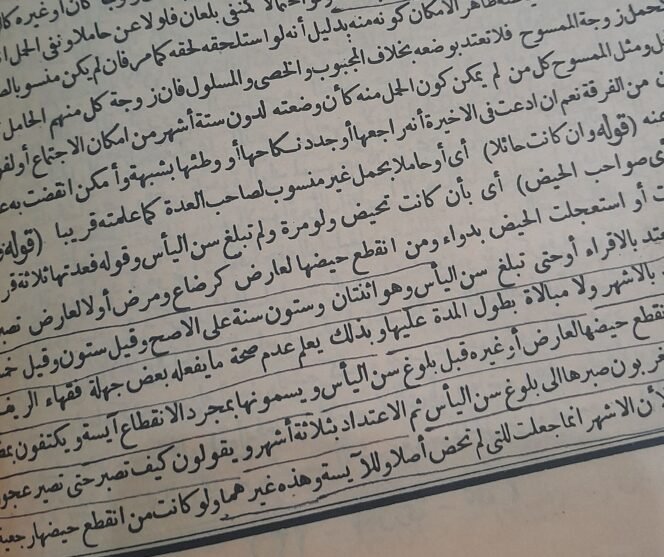 بلعان فلو لاعن حاملا ونفى الحمل
ظاهر الامكان كونه منه بدليل أنه لو استلحقه لحقه كما مر فان لم يكن منسوبا
زوجة الممسوح فلا تعتد بوضعه بخلاف المجبوب والخصى والمسلول فان زوجة كل منهم الحامل
ومثل الممسوح كل من لم يمكن كون الحمل منه كأن وضعته لدون ستة أشهر من امكان الاجتماع أو
من الفرقة نعم ان ادعت فى الاخيرة أنه راجعها أو جدد نكاحها أو وطئها بشبهة وأمكن انقضت به
منه (قوله وان كانت حائلا) أى أو حاملا بحمل غير منسوب لصاحب العدة كما علمته قريبا (قوله
صواحب الحيض) أى بأن كانت تحيض ولو مرة ولم تبلغ سن اليأس وقوله فعدتها ثلاثة
أو استعجلت الحيض بدواء ومن انقطع حيضها لعارض كرضاع ومرض أو لا لعارض
بالاقراء أو حتى تبلغ سن اليأس وهو اثنتان وستون سنة على الاصح وقيل ستون وقيل
بالاشهر ولا مبالاة بطول المدة عليها وبذلك يعلم عدم صحة ما يفعله بعض جهلة فقهاء الريف
حيضها لعارض أو غيره قبل بلوغ سن اليأس ويسمونها بمجرد الانقطاع آيسة ويكتفون
صبرها الى بلوغ سن اليأس ثم الاعتداد بثلاثة أشهر ويقولون كيف تصبر حتى تصير عجوز
لأن الاشهر انما جعلت للتى لم تحض أصلا وللآيسة وهذه غيرهما ولو كانت من انقطع حيضها